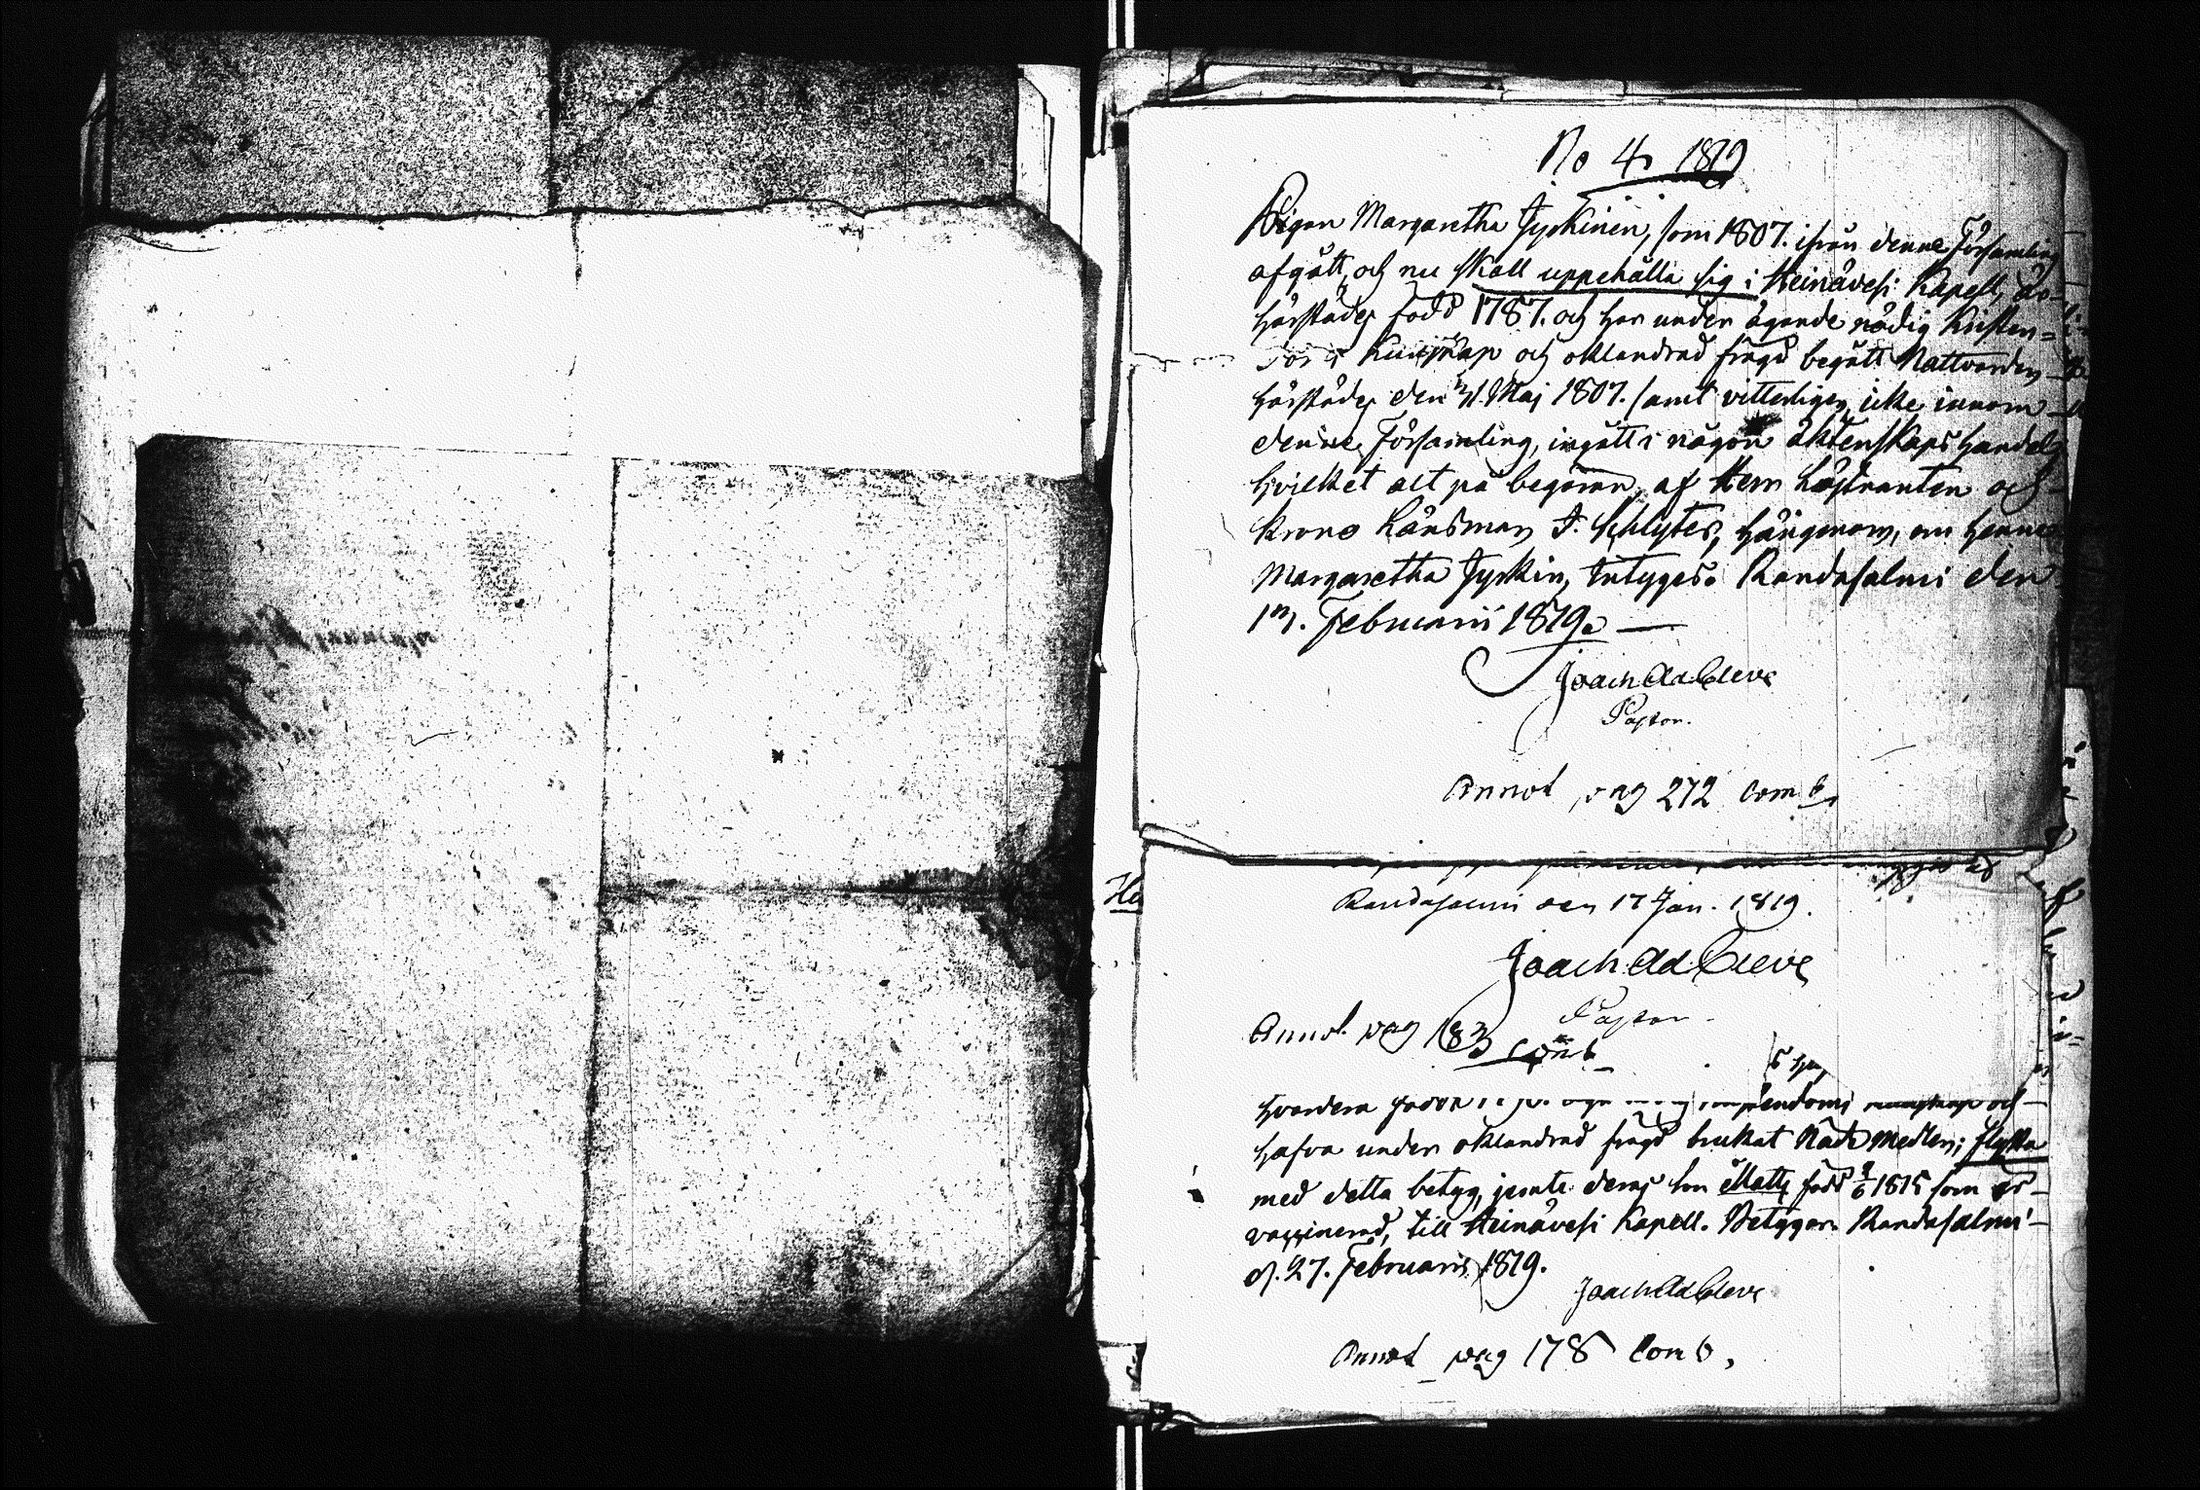 No 4. 1819
Pigan Margaretha Jyskinen, som 1807. ifrån denne Församling
afgått, och nu skall uppehålla sig i Heinävesi Kapell, är
härstädes född 1787. och har under ägande nödig Kristen-
Kunskap och oklandrad frägd begått Nattvarden
härstädes den Maj 1807. samt vitterligen, icke innom
denne Församling, ingått i någon äktenskaps handel,
hvilket alt på begäran, af Herr och
Krono Länsman J. Schlyter, härigenom, om henne
Margaretha Jyskin, intygas. Randasalmi den
1. Februarii 1819.
Joach Ad Cleve
Pastor.
Annot pag 272 Comb.
Ha
Randasalmi den 17 Jan. 1819.
Joach Ad Cleve
Pastor.
Annot. pag 183 Comb
hvardera och
hafva under oklandrad frägd brukat Nåde Medlen; flytta
med detta betyg, jemte deras son Matts född 1815 som är
vaccinerad, till Heinävesi Kapell. Betygar. Randasalmi
d. 27. Februarii 1819.
Joach Ad Cleve
Annot pag 178 Comb.